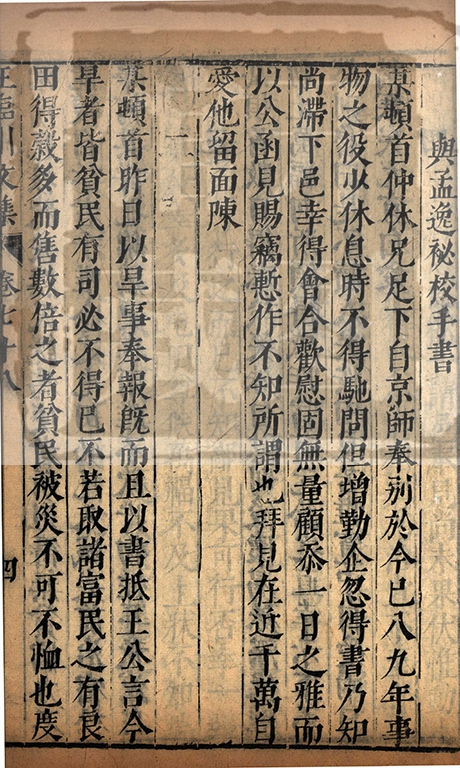 與孟逸祕校手書
某頓首仲休兄足下自京師奉別於今已八九年事
物之役少休息時不得馳問但增勤企忽得書乃知
尚滯下邑幸得會合歡慰固無量顧忝一日之雅而
以公函見賜竊慙作不知所謂也拜見在近千萬自
愛他留面陳
二
某頓首昨日以旱事奉報旣而且以書抵王公言今
旱者皆貧民有司必不得已不若取諸富民之有良
田得穀多而售數倍之者貧民被災不可不恤也度
王臨川文集 卷七十八 四